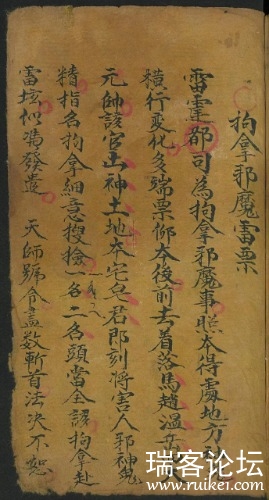 拘拿邪魔雷票
雷霆都司為拘拿邪魔事照本得處地方
橫行变化多端票仰本後前去着落馬趙温
元帥該官山神土地本宅皂君即刻將害人邪神鬼
精指名拘拿細意搜捡一名二名頭當全該拘拿赴
雷坛似馮發遣 天師號令盡数斬首法決不恕
瑞客论坛
www.ruiker.com